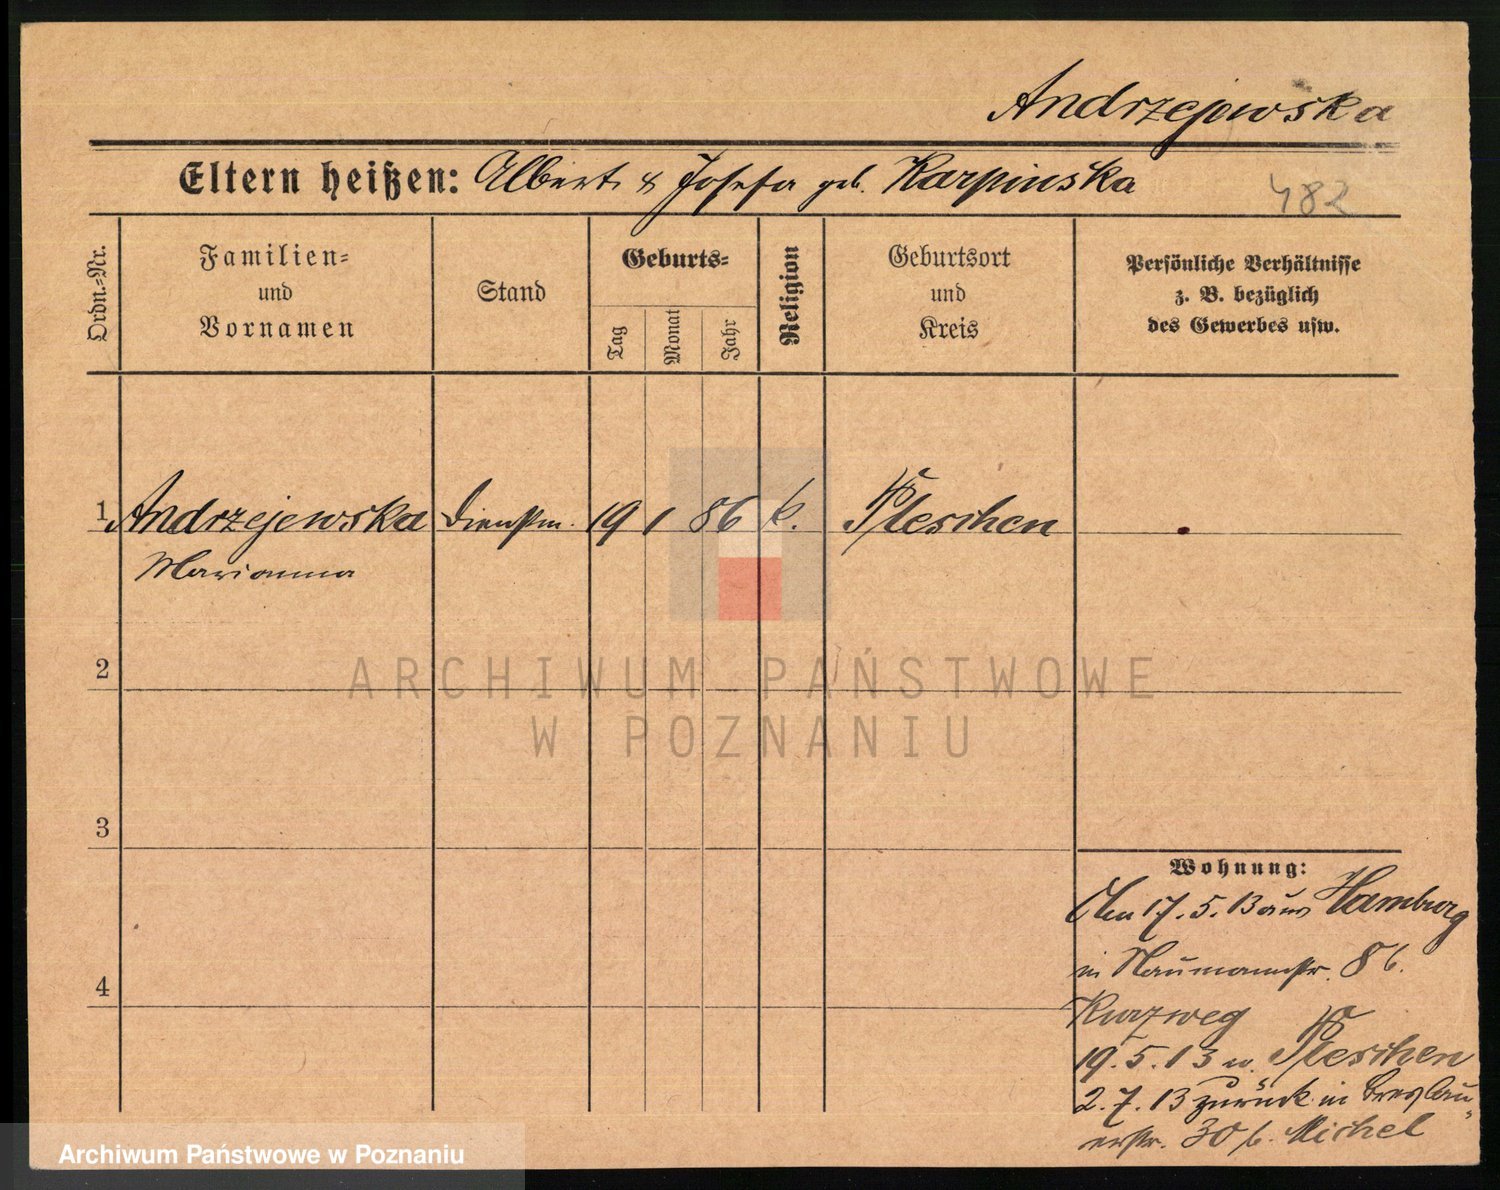 Andrzejewska
Eltern heißen: Albert & Josefa geb. Karpinska
482
Ordn.-Nr.
Familien-
und
Vornamen
Stand
Geburts-
Tag
Monat
Jahr
Religion
Geburtsort
und
Kreis
Persönliche Verhältnisse
z. B. bezüglich
des Gewerbes usw.
1 Andrzejewska Dienstm. 19 1 86 k. Pleschen
Marianna
2
3
4
ARCHIWUM PAŃSTWOWE
W POZNANIU
Wohnung:
17. 5. 13 aus Hamburg
in Naumannstr. 8 b.
Kurzweg
19. 5. 13 n. Pleschen
2. 7. 13 zurück in Breslau-
erstr. 30 b. Michel
Archiwum Państwowe w Poznaniu